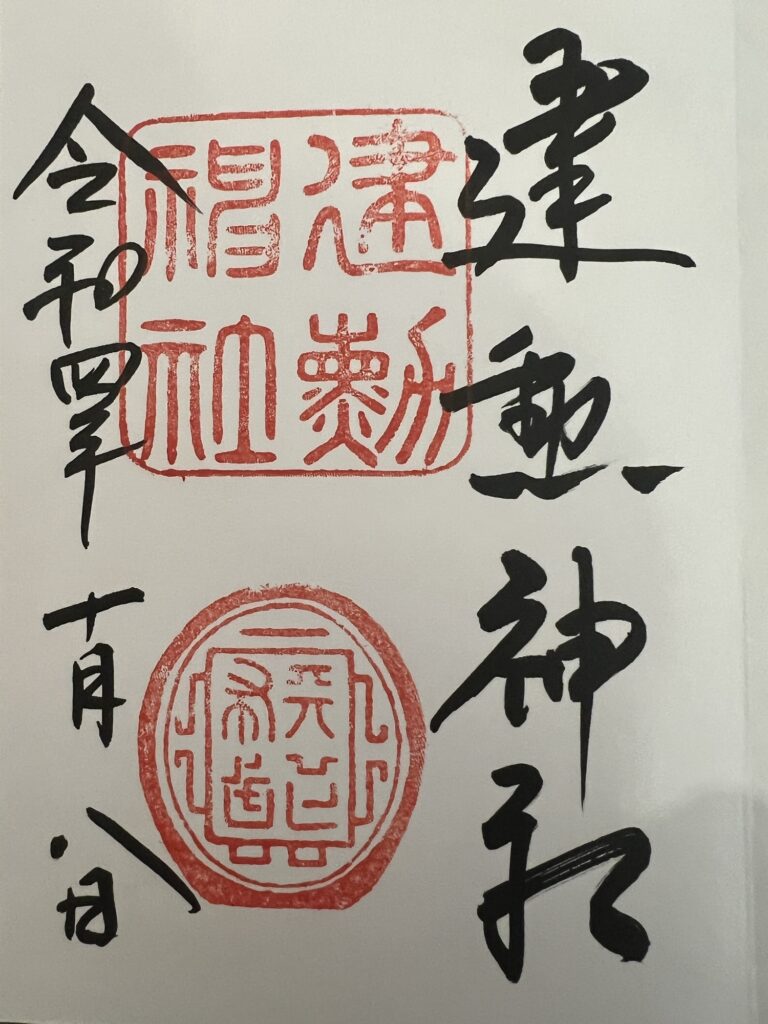 建勲神社
建勲神社
天下布武
令和四年十月八日